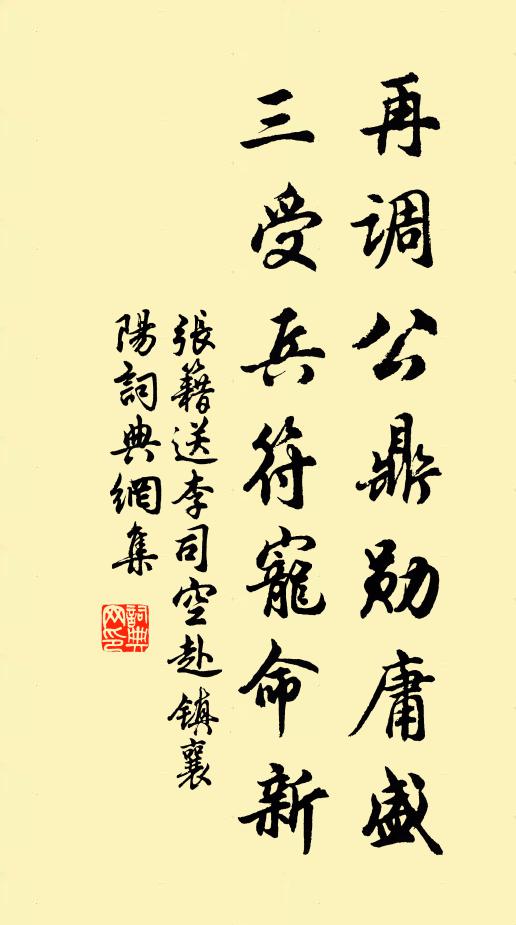 再调公鼎勋庸盛
三受兵符寵命新
張籍送李司空赴鎮襄
陽詞典網集
詞典
网印